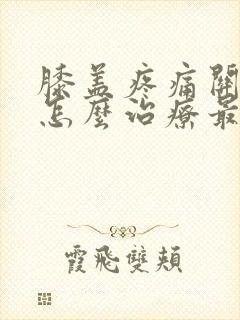 膝盖疼痛關
怎麼治療最
霞飛雙頰